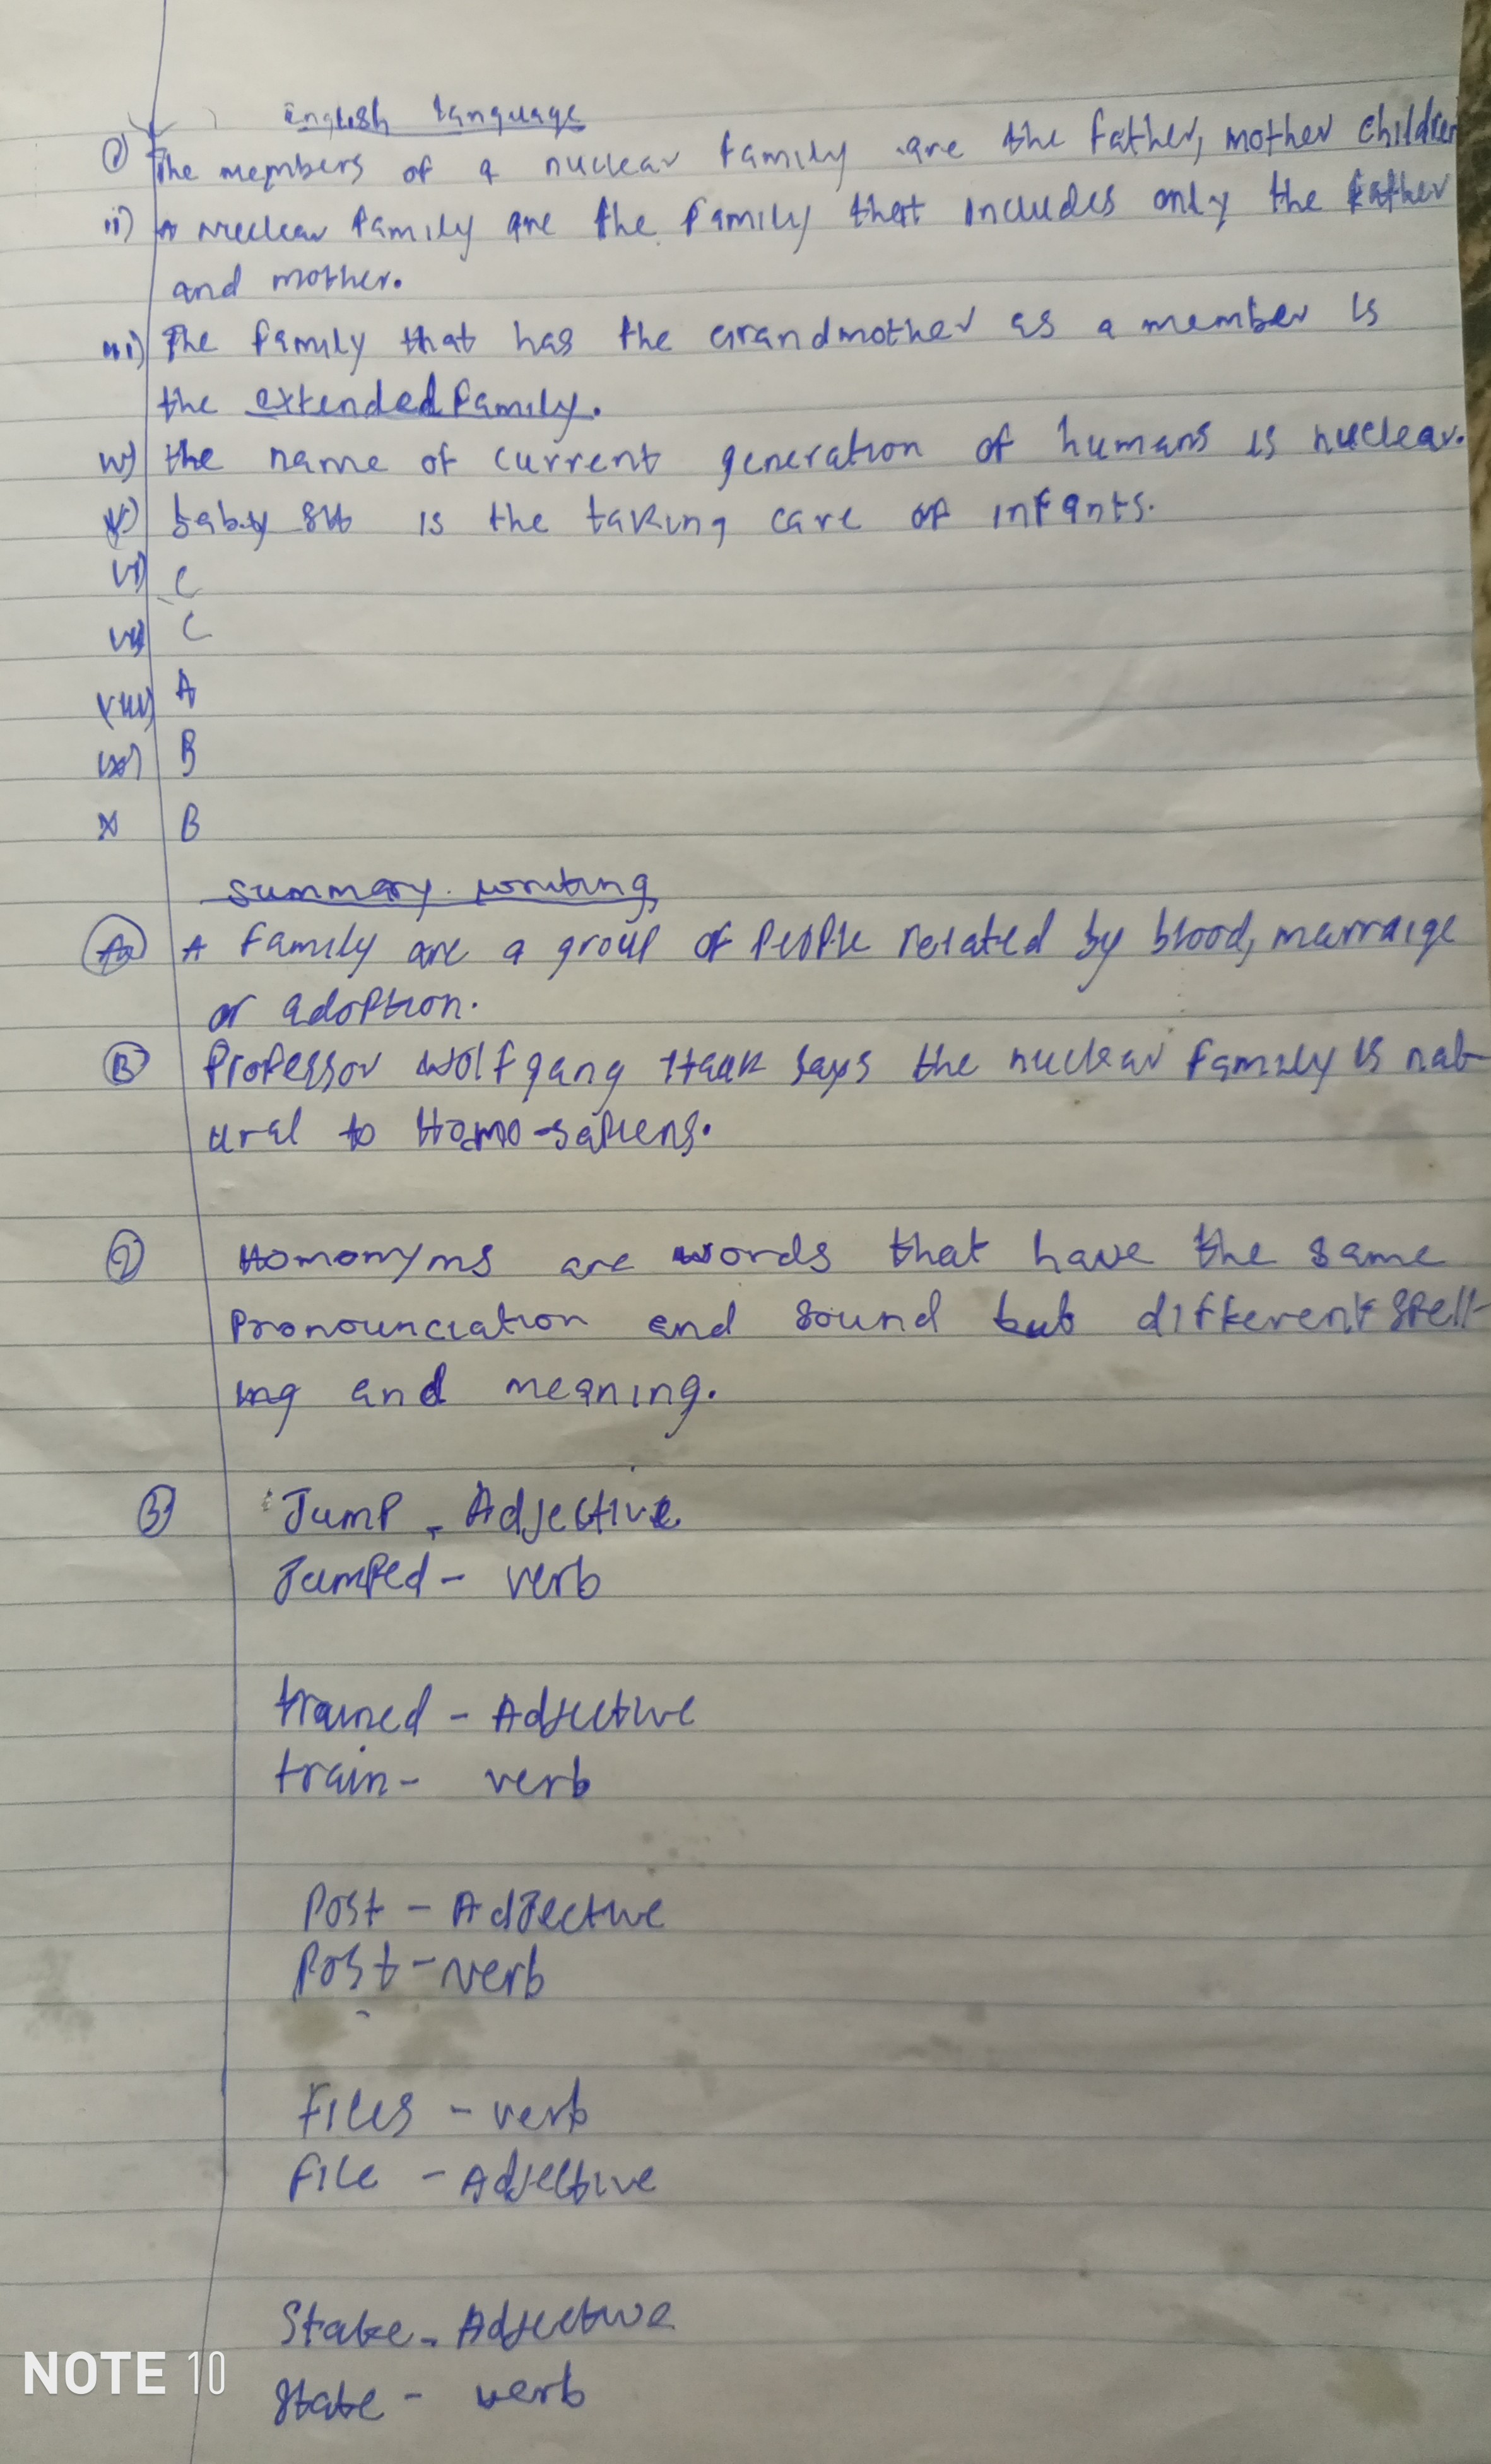 English language
i) The members of a nuclear family are the father, mother children
ii) A nuclear family are the family that includes only the father
and mother.
iii) The family that has the Grandmother as a member is
the extended family.
iv) the name of current generation of humans is nuclear.
v) baby sit is the taking care of infants.
vi) C
vii) C
viii) A
ix) B
x B
summary writing
A family are a group of people related by blood, marraige
or adoption.
B Professor Wolfgang Haak says the nuclear family is nat-
ural to Homo-sapiens.
Homonyms are words that have the same
pronounciation and sound but different spell-
ing and meaning.
3 Jump - Adjective
Jumped - verb
trained - Adjective
train - verb
Post - Adjective
Post - verb
Files - verb
File - Adjective
State - Adjective
State - verb
NOTE 10